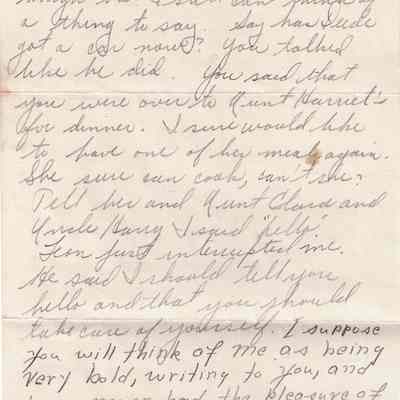 a thing to say. Say has
got a car now? You talked
like he did. You said that
you were over to Aunt Harriet's
for dinner. I sure would like
to have one of her meals again.
She sure can cook, can't she?
Tell her and Aunt and
Uncle Harry I said "hello".
Leon just interrupted me.
He said I should tell you
hello and that you should
take care of yourself. I suppose
you will think of me as being
very bold, writing to you, and
had the pleasure of